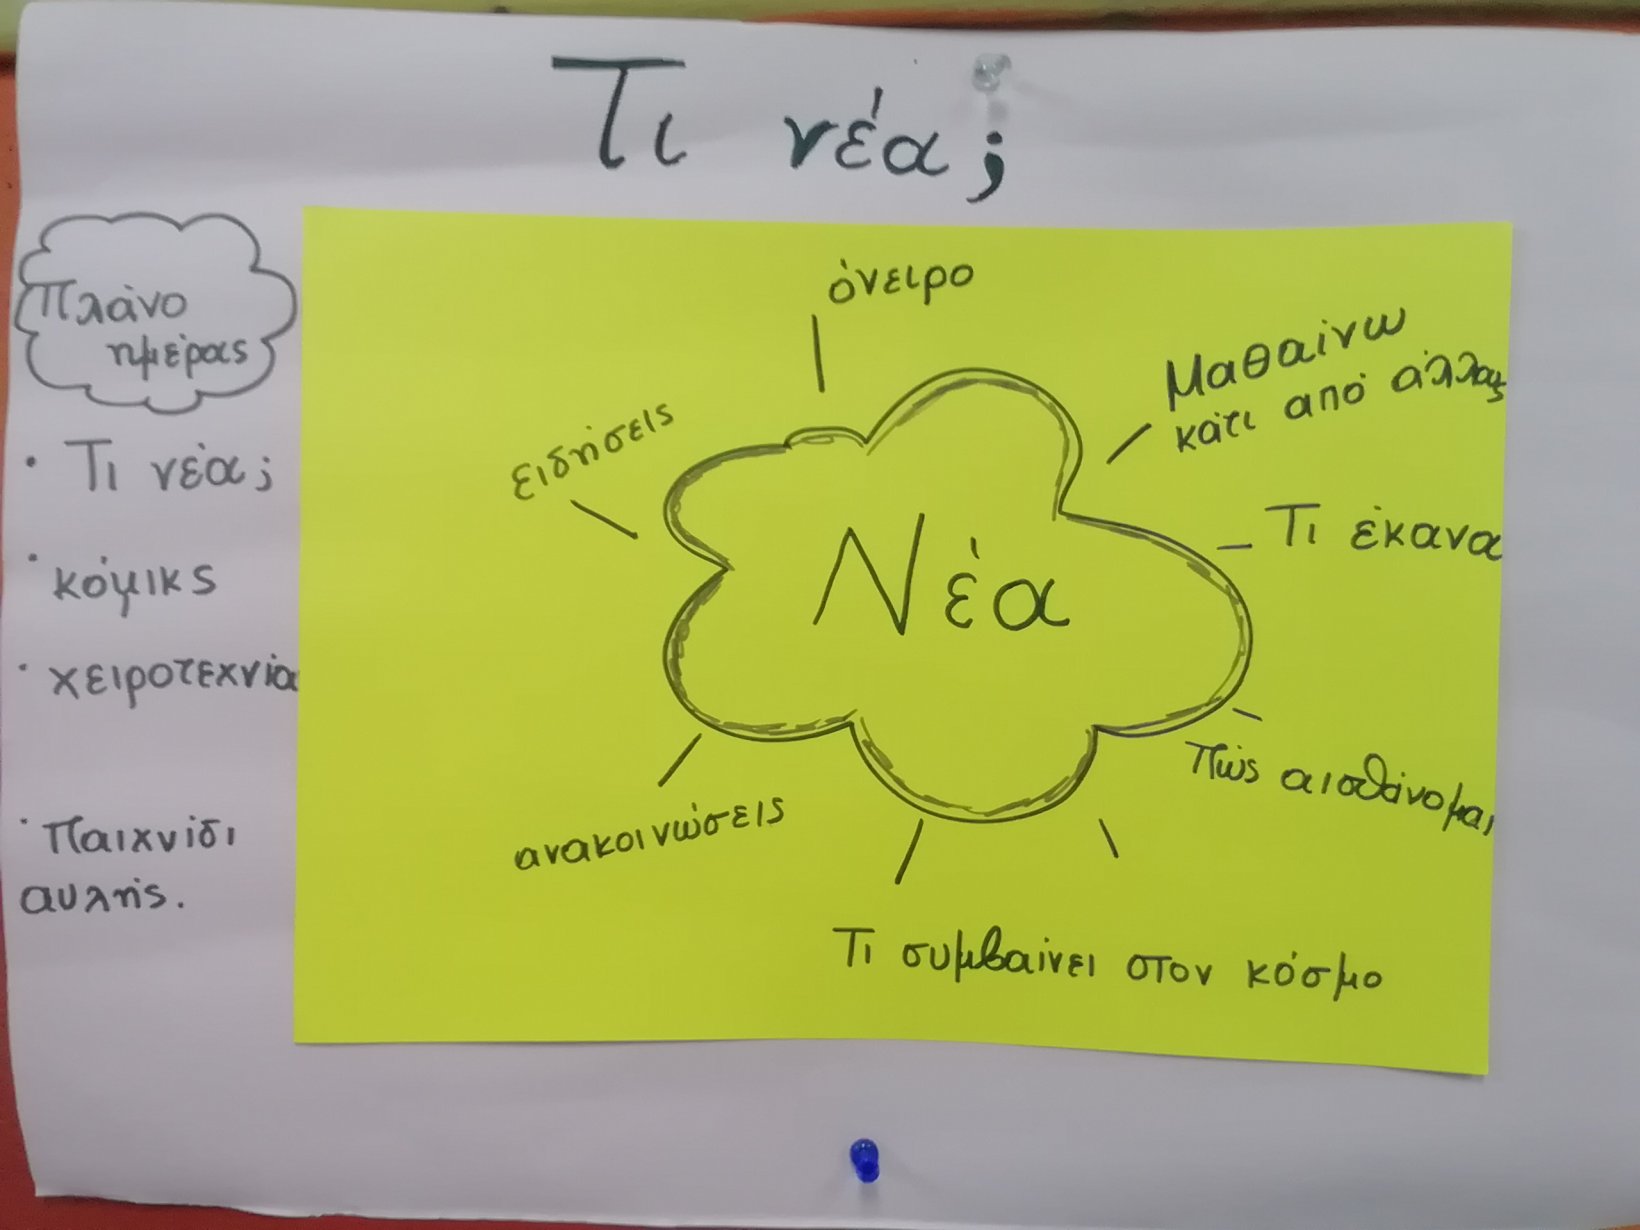 Τι νέα;
Πλάνο
ημέρας
· Τι νέα;
· κόμικς
· χειροτεχνία
· Παιχνίδι
αυλής.
όνειρο
Μαθαίνω
κάτι από άλλους
ειδήσεις
Τι έκανα
Νέα
Πώς αισθάνομαι
ανακοινώσεις
Τι συμβαίνει στον κόσμο